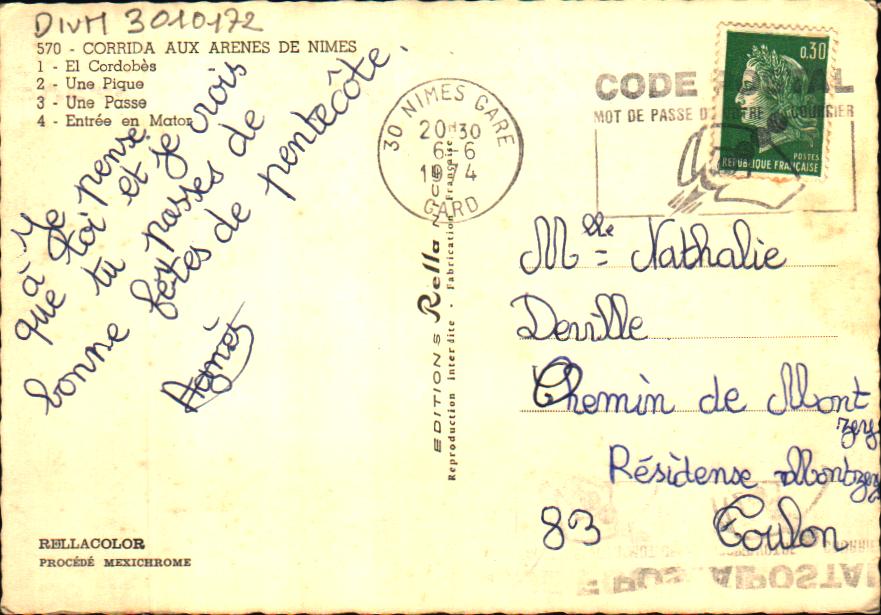 DIVM 3010172
570 - CORRIDA AUX ARENES DE NIMES
1 - El Cordobès
2 - Une Pique
3 - Une Passe
4 - Entrée en Mator
Je pense
à toi et je crois
que tu passes de
bonne fêtes de pentecôte.
Agnès
RELLACOLOR
PROCÉDÉ MEXICHROME
EDITIONS Rella
Reproduction interdite - Fabrication Française
30 NIMES GARE
20H30
6-6
GARD
CODE
MOT DE PASSE
0,30
POSTES
REPUBLIQUE FRANÇAISE
Mlle Nathalie
Derville
Chemin de Mont
zey
Résidense Montzey
83 Toulon